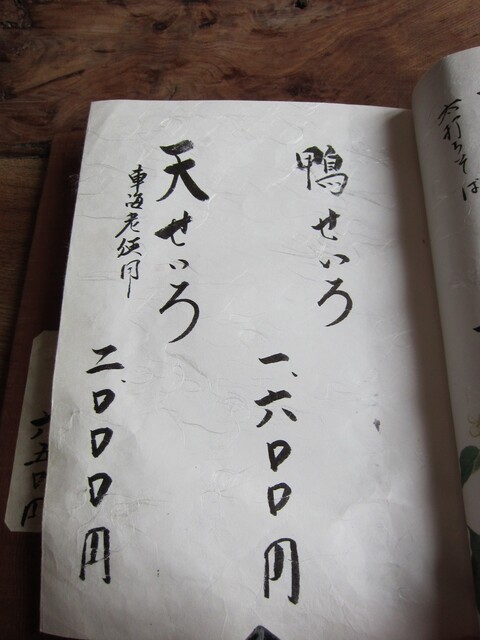 太打ちそば
鴨せいろ
一、六〇〇円
天せいろ
車海老使用
二、〇〇〇円